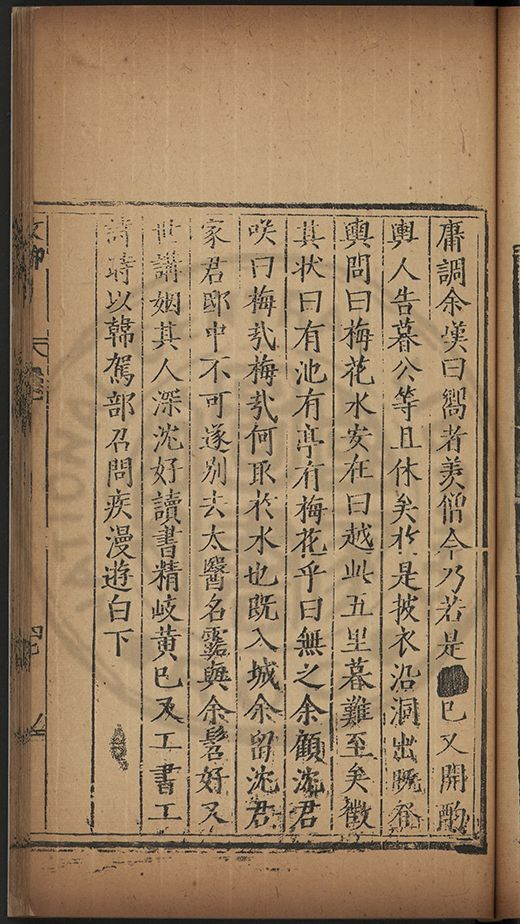 庸調余嘆曰嚮者羡僧今乃若是已又開酌
輿人告暮公等且休矣於是披衣沿洞出既登
輿問曰梅花水安在曰越此五里暮難至矣徵
其状曰有池有亭有梅花乎曰無之余顧沈君
咲曰梅㢤梅㢤何取於水也既入城余留沈君
家君邸中不可遂别去太醫名露與余髫好又
世講姻其人深沈好讀書精岐黄已又工書工
詩時以韓駕部召問疾漫遊白下